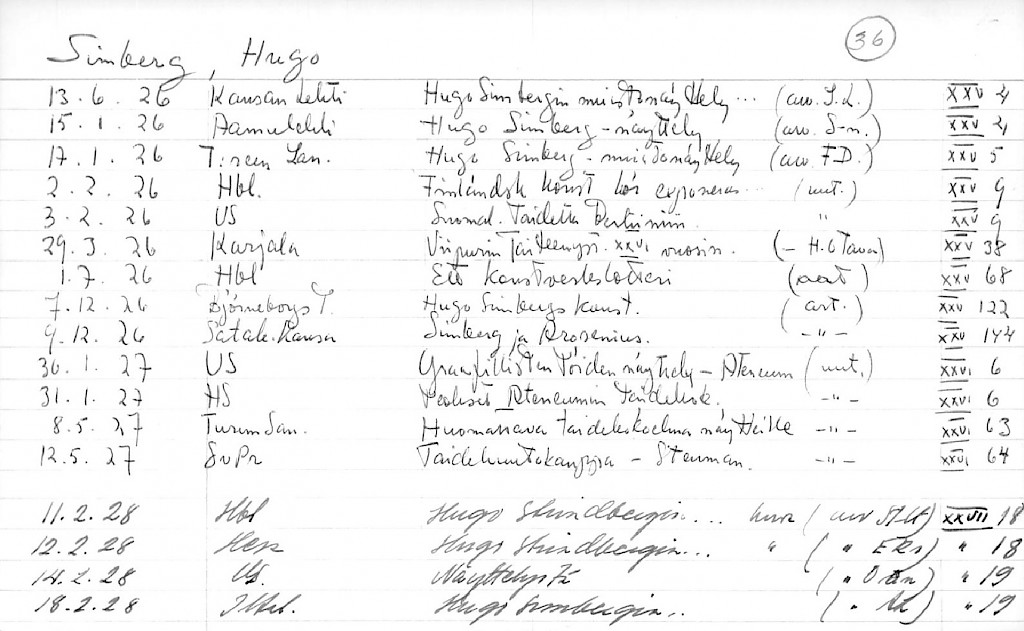 36
Simberg, Hugo
13.6.26 Kansan Lehti Hugo Simbergin muistonäyttely... (arv. S.L.) XXV 4
15.1.26 Aamulehti Hugo Simberg-näyttely (arv. S-n.) XXV 4
17.1.26 Turun San. Hugo Simberg-muistonäyttely (arv. F.D.) XXV 5
2.2.26 Hbl. Finländsk konst bör exponeras... (uut.) XXV 9
3.2.26 US Suomal. Taidetta Berliiniin " XXV 9
29.3.26 Karjala Viipurin XXVI vuosin. (- H. Otava) XXV 38
1.7.26 Hbl Ett XXV 68
7.12.26 Björneborgs T. Hugo Simbergs konst. (art.) XXV 122
9.12.26 Satak. Kansa Simberg ja Arosenius. -"- XXV 144
30.1.27 US Graafillisten töiden näyttely - Ateneum (uut.) XXVI 6
31.1.27 HS Ateneumin taidekok. -"- XXVI 6
8.5.27 Turun San. Huomattava taidekokoelma näytteille -"- XXVI 63
12.5.27 SvPr Taidekauppa - Stenman. -"- XXVI 64
11.2.28 Hbl Hugo Strindbergin... (arv ) XXVII 18
12.2.28 Hugo Strindbergin... " (" Eks) " 18
14.2.28 US. Näyttelystä (" ) " 19
18.2.28 Hugo Simbergin.. (" ) " 19